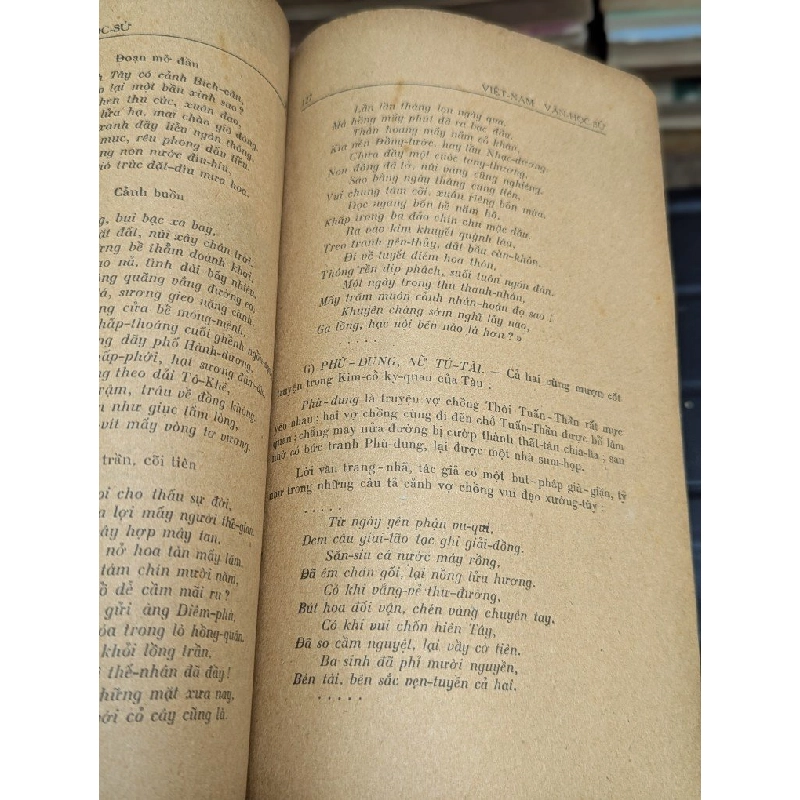 ỌC-SỬ
Đoạn mở đầu
Tây có cảnh Bích-câu,
lại một bầu xinh sao?
hen thu cúc, xuân đào,
lửa hạ, mai chào gió đông.
xanh đầy liễu ngàn thông,
mục, rêu phong dấu tiều.
non nước đìu-hiu,
trúc dắt-díu mưa hoa.
Cảnh buồn
bụi bạc xa bay,
đất dải, núi xây chân trời.
bể thẳm doành khơi,
não nả, tình dài bấy nhiên.
quãng vắng đường cối,
sương gieo nặng cành
cửa bể mong-mênh,
thấp-thoáng cuối ghềnh
dãy phố Hành-dương,
phấp-phới, hạt sương
theo dải Tô-Khê,
rậm, trâu về đồng không.
như giục tấm lòng,
vít mấy vòng tơ vương.
trần, cõi tiên
cho thấu sự đời,
lợi mấy người thế-gian.
hợp mây tan.
nở hoa tàn mấy lăm.
tám chín mười năm,
dễ cầm mãi ru?
gửi áng Diêm-phù,
trong lò hồng-quân.
khỏi lòng trần.
thế-nhân đã đầy!
những mặt xưa nay.
cỏ cây cũng là
VIỆT-NAM VĂN-HỌC SỬ
Lần lần tháng lọn ngày qua,
Má hồng mấy phút đã ra bạc đầu.
Thần hoang mấy nấm cỏ khâu,
Kìa nền Đồng-tước, hay lầu Nhạc-dương.
Chưa đầy một cuộc tang-thương,
Non dòng đã lở, núi vàng cũng nghiêng.
Sao bằng ngày tháng cung tiên,
Vui chung tám cõi, xuân riêng bốn mùa.
Dọc ngang bốn bể năm hồ,
Khắp trong ba đảo chín chu mặc dầu.
Ra vào kim khuyết quỳnh lâu,
Treo tranh yên-thủy, dắt bầu càn-khôn.
Đi về tuyết điểm hoa thôn,
Thông rền dịp phách, suối tuôn ngón đàn.
Một ngày trong thú thanh-nhàn,
Mấy trăm muôn cảnh nhân-hoàn đọ sao!
Khuyên chàng sớm nghĩ tây nao,
Gà lồng, hạc nội bên nào là hơn?»
. . . . .
G) PHÙ-DUNG, NỮ TÚ-TÀI. — Cả hai cùng mượn cốt
truyện trong Kim-cổ kỳ-quan của Tàu:
Phù-dung là truyện vợ chồng Thôi Tuấn-Thần rất mực
yêu nhau; hai vợ chồng cùng đi đến chỗ Tuấn-Thần được bổ làm
quan; chẳng may nửa đường bị cướp thành thất-tán chia-lìa, sau
nhờ có bức tranh Phù-dung, lại được một nhà sum-họp.
Lời văn trang-nhã, tác giả có một bút-pháp già-giặn, tỷ
như trong những câu tả cảnh vợ chồng vui đạo xướng-tùy:
. . . . .
Từ ngày yên phận vu-qui,
Đem câu giai-lão tạc ghi giải-đồng.
Sắn-sìu cá nước mây rồng,
Đã êm chăn gối, lại nồng lửa hương.
Có khi vắng-vẻ thư-đường,
Bút hoa đối vận, chén vàng chuyền tay.
Có khi vui chốn hiên Tây,
Đã so cầm nguyệt, lại vầy cờ tiên.
Ba sinh đã phỉ mười nguyền,
Bên tài, bên sắc vẹn-tuyền cả hai.
. . . . .